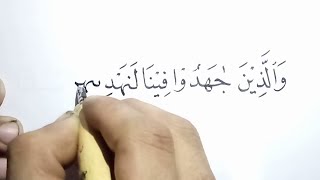 وَالَّذِيْنَ جٰهَدُوْا فِيْنَا لَنَهْدِيـ